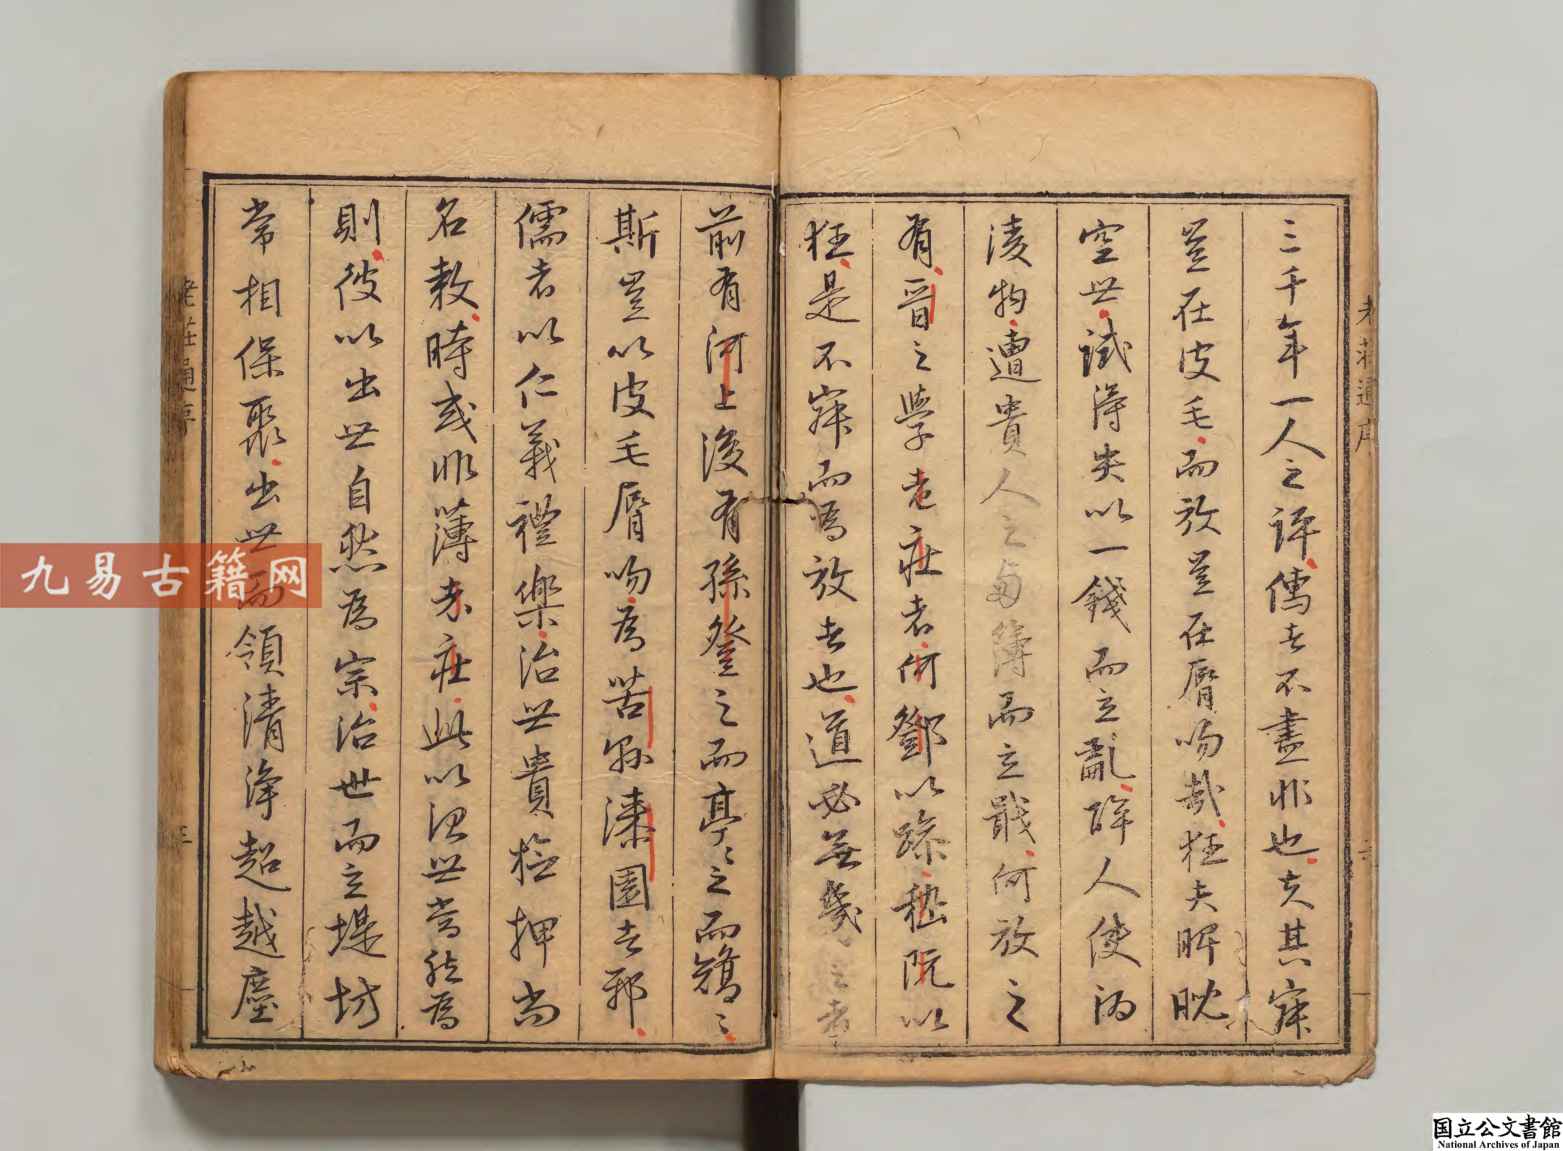 三千年一人之許傳者不盡非也夫其寐
豈在皮毛而放豈在脣吻哉狂夫睥睨
空世試得失以一錢而立亂醉人使酒
凌物遭貴人之鹵簿而立戢何放之
有晉之學老莊者何鄧以躁嵇阮以
狂是不寐而為放者也道必無幾之者
前有河上後有孫登之而亭亭之而鴻鴻
斯豈以皮毛脣吻為苦縣漆園者邪
儒者以仁義禮樂治世貴檢押尚
名教時或非薄老莊此以治世當然為
則彼以出世自然為宗治世而立堤坊
常相保聚出世而領清淨超越塵
老莊通序
老莊通序
九易古籍网
国立公文書館
National Archives of Japan